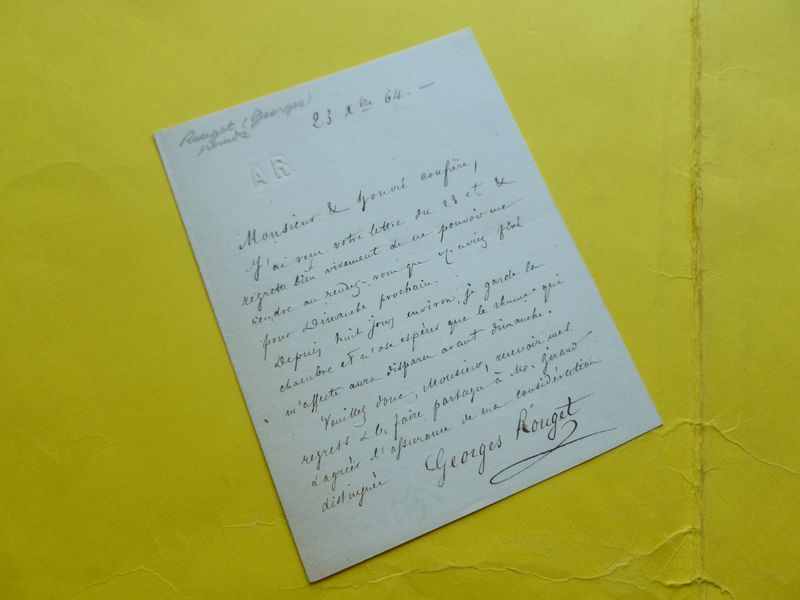 Rouget (Georges)
peintre
23 Xbre 64. —
AR
Monsieur & honoré confrère,
J'ai reçu votre lettre du 23 ct &
regrette bien vivement de ne pouvoir me
rendre au rendez-vous que m'aviez fixé
pour Dimanche prochain.
Depuis huit jours environ, je garde la
chambre et n'ose espérer que le rhume qui
m'affecte aura disparu avant dimanche.
Veuillez donc, Monsieur, recevoir mes
regrets & les faire partager à Mr. Girard
& agréer l'assurance de ma considération
distinguée
Georges Rouget